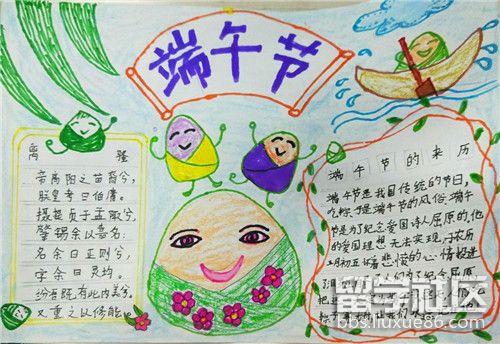 端午节
离 骚
帝高阳之苗裔兮,
朕皇考曰伯庸。
摄提贞于孟陬兮,
锡余以嘉名。
名余曰正则兮,
字余曰灵均。
纷吾既有此内美兮,
又重之以修能。
端午节的来历
端午节是我国传统的节日,
吃粽子是端午节的风俗,端午
节是为了纪念爱国诗人屈原的,他
的爱国理想无法实现,于农历
五月初五怀着悲愤的心情投进
人们为了纪念屈原
把
留学社区
bbs.liuxue86.com